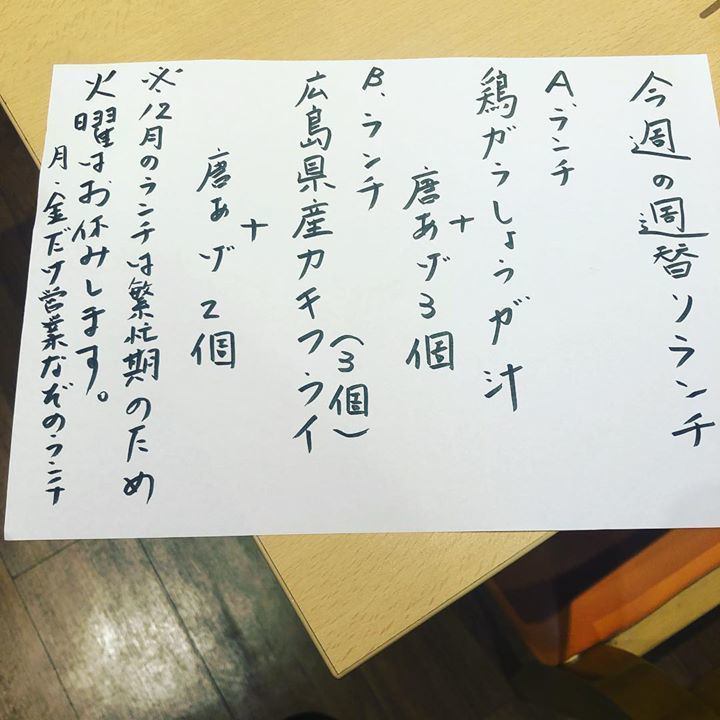 今週の週替りランチ
A、ランチ
鶏がらしょうが汁
+
唐あげ3個
B、ランチ
広島県産カキフライ
(3個)
+
唐あげ2個
※12月のランチは繁忙期のため
火曜はお休みします。
月・金だけ営業なぞのランチ